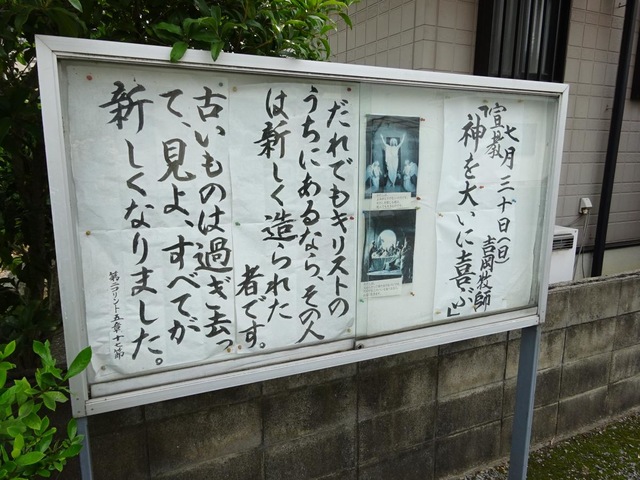 七月三十日(日)
宣教 吉岡牧師
「神を大いに喜ぶ」
だれでもキリストの
うちにあるなら、その人
は新しく造られた
者です。
古いものは過ぎ去っ
て、見よ、すべてが
新しくなりました。
第二コリント五章十七節